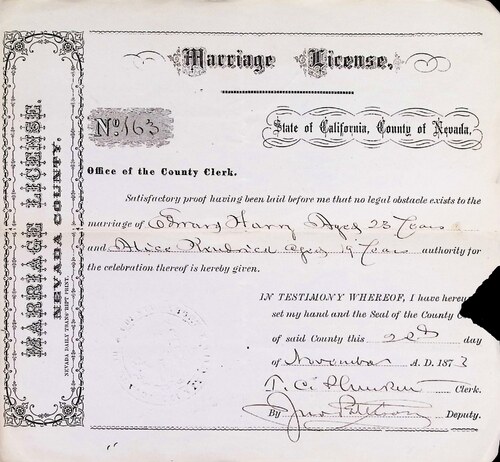 MARRIAGE LICENSE.
NEVADA COUNTY.
NEVADA DAILY TRANSCRIPT PRINT.
Marriage License.
No. 163
State of California, County of Nevada.
Office of the County Clerk.
Satisfactory proof having been laid before me that no legal obstacle exists to the
marriage of Edward Harry Aged 23 Years
and Alice Kendrick Aged 19 Years authority for
the celebration thereof is hereby given.
IN TESTIMONY WHEREOF, I have hereun
set my hand and the Seal of the County C
of said County this 22d day
of November A. D. 1873
T. C. Clerk.
By Jno Pattison Deputy.